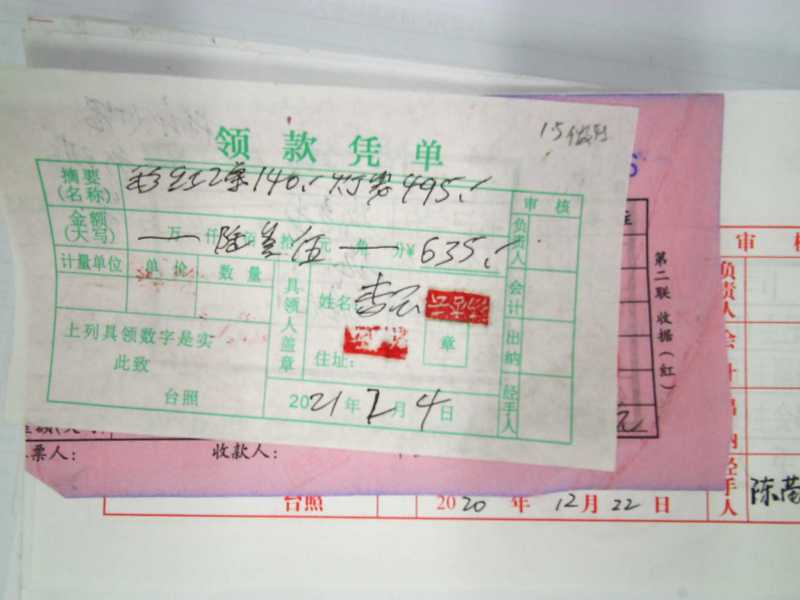 领款凭单
摘要
(名称)
140.- 灯劳495.-
审核
金额
(大写)
万仟佰拾元角分¥ 635.-
陆叁伍
负责人
计量单位 单价 数量
具领人盖章
姓名:
会计
上列具领数字是实
此致
台照
住址:
章
出纳
2021年2月4日
经手人
第二联 收据(红)
票人:
收款人:
元
审核
负责人
会计
出纳
经手人
陈
台照
2020年12月22日